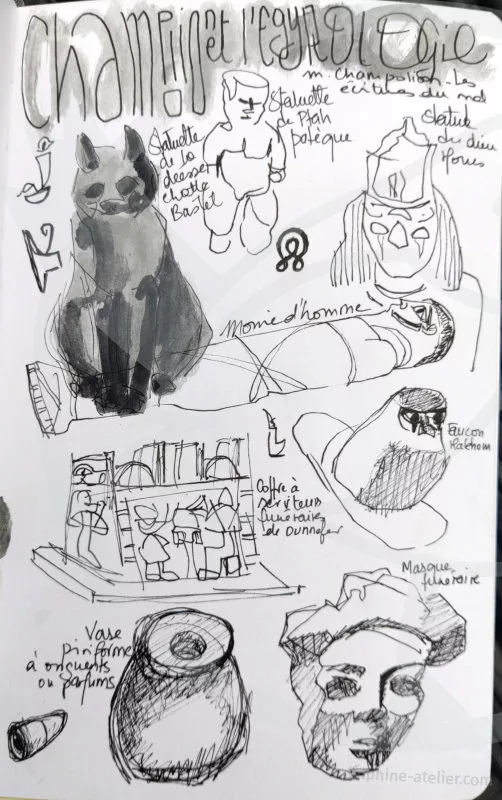 Champollion et l'Egyptologie
m. Champollion. Les
écritures du nord
Statuette
de Ptah
patèque
Statuette
de la
déesse
chatte
Bastet
Statue
du dieu
Horus
Momie d'homme
Faucon
Coffre à
serviteurs
funéraires
de Ounnefer
Masque
funéraire
Vase
piriforme
à onguents
ou parfums
phine-atelier.com